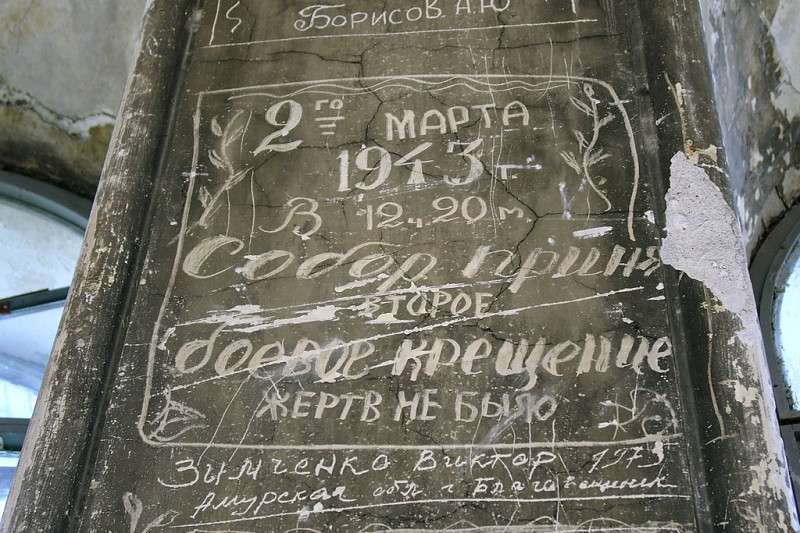 Борисов. А.Ю
2го МАРТА
1943 г.
В 12 ч. 20 м.
Собор приня
ВТОРОЕ
боевое крещение
ЖЕРТВ НЕ БЫЛО
Зимченко Виктор 1973
Амурская обл г Благовещенск